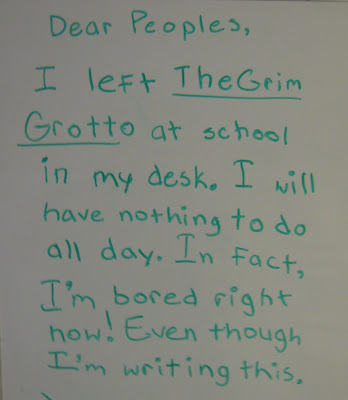 Dear Peoples,
I left TheGrim
Grotto at school
in my desk. I will
have nothing to do
all day. In Fact,
I'm bored right
now! Even though
I'm writing this.